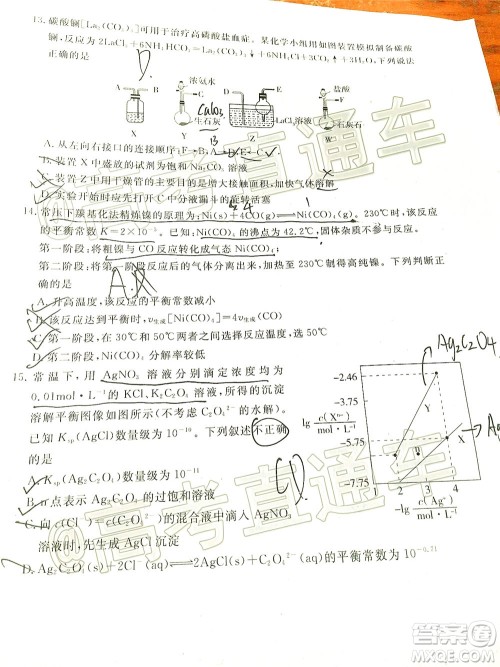 13. 碳酸镧[La₂(CO₃)₃]可用于治疗高磷酸盐血症。某化学小组用如图装置模拟制备碳酸
镧,反应为2LaCl₃+6NH₄HCO₃=La₂(CO₃)₃↓+6NH₄Cl+3CO₂↑+3H₂O,下列说法
正确的是
D.
浓氨水 盐酸
A B C D E F
CaCl₂
生石灰 LaCl₃溶液 石灰石
X Y Z W
B
A. 从左向右接口的连接顺序:F→B,A→D,E←C
B. 装置X中盛放的试剂为饱和
溶液
C. 装置Z中用干燥管的主要目的是增大接触面积,加快气体溶解
D. 实验开始时应先打开
中分液漏斗的旋转活塞
14. 常压下羰基化法精炼镍的原理为:Ni(s)+4CO(g)⇌Ni(CO)₄(g)。230℃时,该反应
的平衡常数K=2×10⁻⁵。已知:Ni(CO)₄的沸点为42.2℃,固体杂质不参与反应。
第一阶段:将粗镍与CO反应转化成气态Ni(CO)₄;
第二阶段:将第一阶段反应后的气体分离出来,加热至230℃制得高纯镍。下列判断正
确的是
A. 升高温度,该反应的平衡常数减小
B. 该反应达到平衡时,v生成[Ni(CO)₄]=4v生成(CO)
C. 第一阶段,在30℃和50℃两者之间选择反应温度,选50℃
D. 第二阶段,Ni(CO)₄分解率较低
15. 常温下,用AgNO₃溶液分别滴定浓度均为
0.01mol·L⁻¹的KCl、K₂C₂O₄溶液,所得的沉淀
溶解平衡图像如图所示(不考虑C₂O₄²⁻的水解)。
已知Ksp(AgCl)数量级为10⁻¹⁰。下列叙述不正确
的是
A. Ksp(Ag₂C₂O₄)数量级为10⁻¹¹
B. n点表示AgCl的过饱和溶液
C. 向c(Cl⁻)=c(C₂O₄²⁻)的混合液中滴入AgNO₃
溶液时,先生成AgCl沉淀
D. Ag₂C₂O₄(s)+2Cl⁻(aq)⇌2AgCl(s)+C₂O₄²⁻(aq)的平衡常数为10⁻⁰·⁷¹
Ag₂C₂O₄
-2.46
-5.75
-7.75
lg c(Xⁿ⁻)/mol·L⁻¹
Y
X
1 2 3 4
-lg c(Ag⁺)/mol·L⁻¹
@高考直通车
@高考直通车
答案圈
MXQE.COM